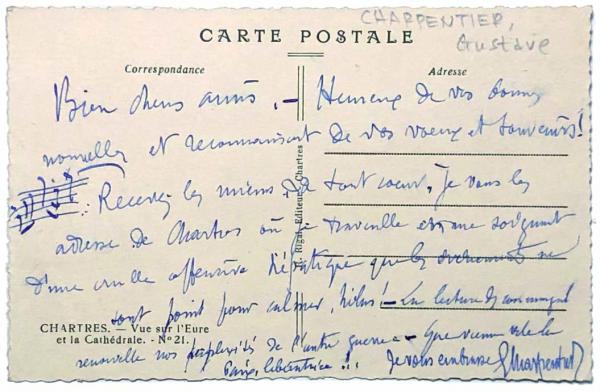 CHARPENTIER,
Gustave
CARTE POSTALE
Correspondance
Adresse
Bien chers amis, — Heureux de vos bonnes
nouvelles et reconnaissant de vos voeux et souvenirs!
Recevez les miens de tout coeur. Je vous les
adresse de Chartres où je travaille en me soignant
d'une cruelle offensive hépatique que les événements ne
sont point pour calmer, hélas! — La lecture du
renouvelle nos perplexités de l'autre guerre — Que vienne vite la
Paix, libératrice!..
Je vous embrasse GCharpentier
CHARTRES. — Vue sur l'Eure
et la Cathédrale. - N° 21.
Rigal Editeur, Chartres